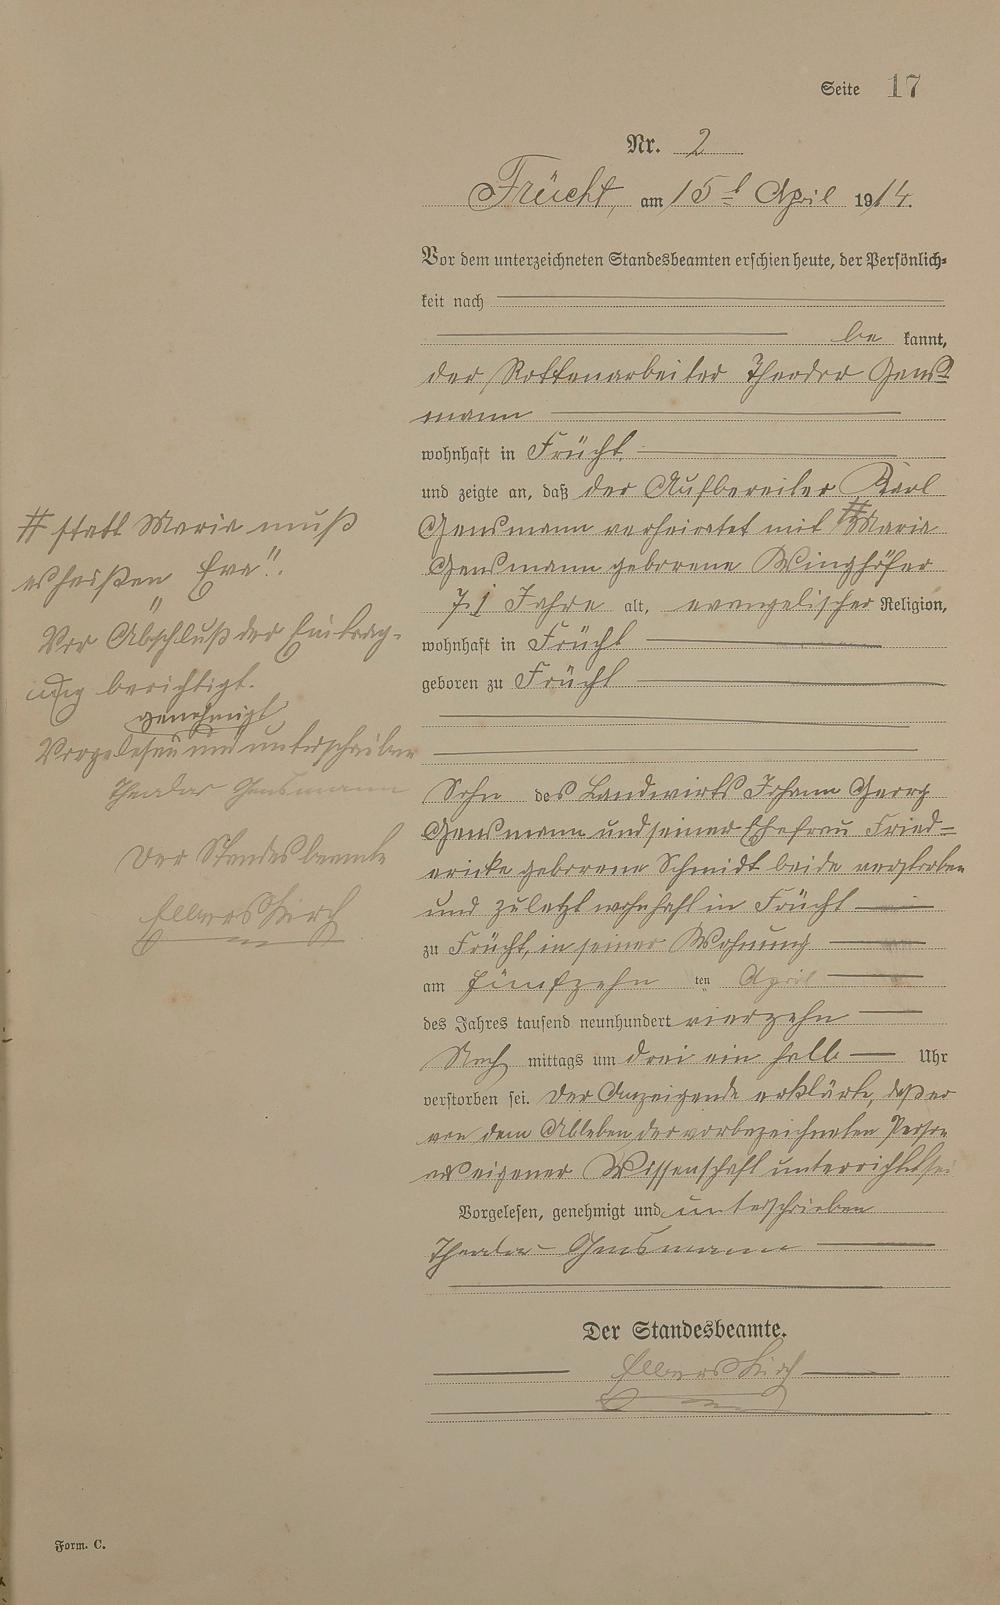 Seite 17
Nr. 2
Frücht, am 15t April 1914.
Vor dem unterzeichneten Standesbeamten erschien heute, der Persönlich-
keit nach
be kannt,
der Rottenarbeiter Theodor Gens-
mann
wohnhaft in Frücht
und zeigte an, daß der Aufbereiter Karl
Gensmann verheiratet mit # Maria
Gensmann geborene Winghöfer
71 Jahre alt, evangelischer Religion,
wohnhaft in Frücht
geboren zu Frücht
Sohn des Landwirts Johann Georg
Gensmann und seiner Ehefrau Fried-
ericke geborene Schmidt beide verstorben
und zuletzt wohnhaft in Frücht
zu Frücht, in seiner Wohnung
am fünfzehn ten April
des Jahres tausend neunhundert vierzehn
Nach mittags um drei ein halb Uhr
verstorben sei. Der Anzeigende erklärte, daß er
von dem Ableben der vorbezeichneten Person
aus eigener Wissenschaft unterrichtet sei
Vorgelesen, genehmigt und unterschrieben
Theodor Gensmann
Der Standesbeamte.
Elberskirch
# statt Maria muß
es heißen „Eva".
Vor Abschluß der Eintrag-
ung berichtigt.
genehmigt
Vorgelesen und unterschrieben
Theodor Gensmann
Der Standesbeamte
Elberskirch
Form. C.